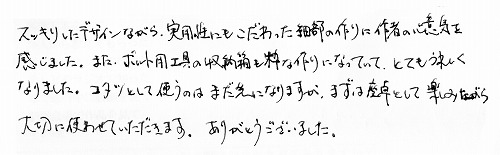 スッキリしたデザインながら、実用性にもこだわった細部の作りに作者の心意気を
感じました。また、ボルト用工具の収納箱も粋な作りになっていて、とてもうれしく
なりました。コタツとして使うのはまだ先になりますが、まずは座卓として楽しみながら
大切に使わせていただきます。ありがとうございました。